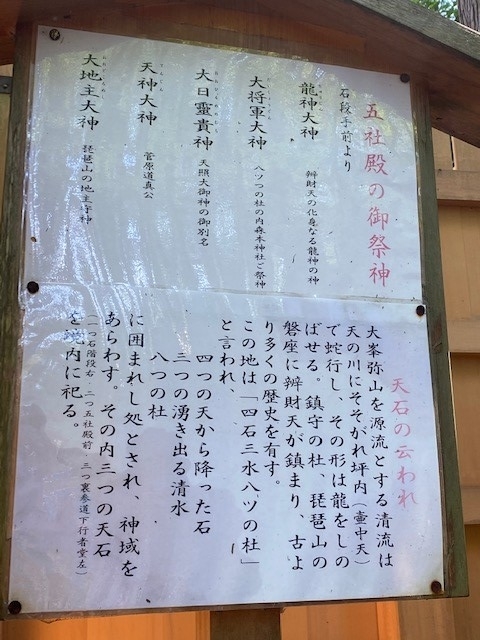 五社殿の御祭神
石段手前より
龍神大神
辨財天の化身なる龍神の神
大将軍大神
八ツの杜の内森本神社ご祭神
大日霊貴神
天照大御神の御別名
天神大神
菅原道真公
大地主大神
琵琶山の地主守神
天石の云われ
大峯弥山を源流とする清流は
天の川にそそがれ坪内(壷中天)
で蛇行し、その形は龍をしの
ばせる。鎮守の杜、琵琶山の
磐座に辨財天が鎮まり、古よ
り多くの歴史を有す。
この地は「四石三水八ツの杜」
と言われ、
四つの天から降った石
三つの湧き出る清水
八つの杜
に囲まれし処とされ、神域を
あらわす。その内三つの天石
(一つ石階段右 二つ五社殿前 三つ裏参道下行者堂左)
を境内に祀る。